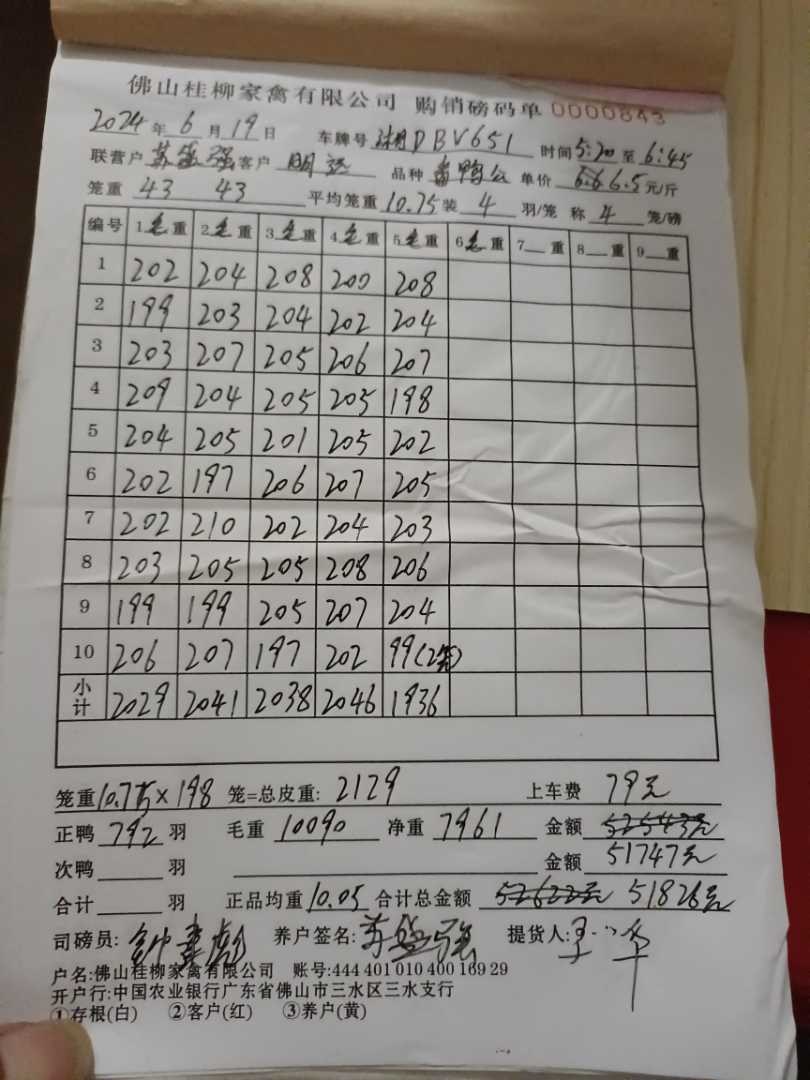 佛山桂柳家禽有限公司 购销磅码单 0000843
2024年6月19日 车牌号 湘DBV651 时间5:20至6:45
联营户 苏 强 客户 明 品种 鸭公 单价 6.5元/斤
笼重 43 43 平均笼重10.75装 4 羽/笼 称 4 笼/磅
编号 1毛重 2毛重 3毛重 4毛重 5毛重 6毛重 7__重 8__重 9__重
1 202 204 208 200 208
2 199 203 204 202 204
3 203 207 205 206 207
4 209 204 205 205 198
5 204 205 201 205 202
6 202 197 206 207 205
7 202 210 202 204 203
8 203 205 205 208 206
9 199 199 205 207 204
10 206 207 197 202 99(2笼)
小计 2029 2041 2038 2046 1936
笼重10.75×198 笼=总皮重: 2129 上车费 79元
正鸭 792 羽 毛重 10090 净重 7961 金额 52543元
次鸭____羽 金额 51747元
合计____羽 正品均重10.05 合计总金额 52622元 51826元
司磅员: 钟 养户签名: 苏 强 提货人: 华
户名:佛山桂柳家禽有限公司 账号:444 401 010 400 169 29
开户行:中国农业银行广东省佛山市三水区三水支行
①存根(白) ②客户(红) ③养户(黄)